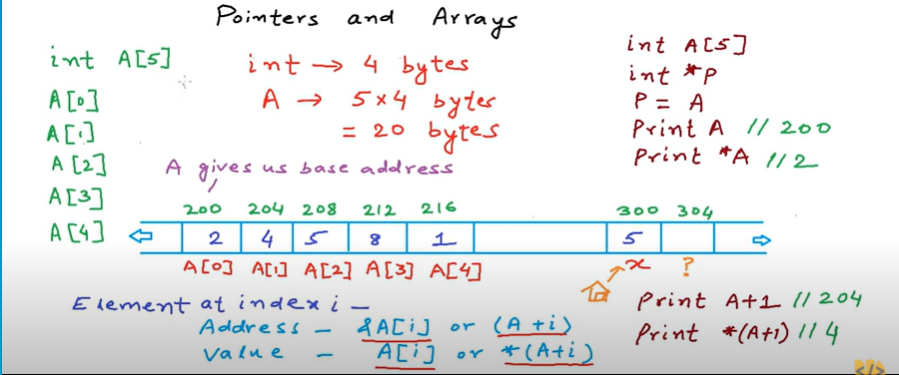 Pointers and Arrays
int A[5]
A[0]
A[1]
A[2]
A[3]
A[4]
int → 4 bytes
A → 5x4 bytes
= 20 bytes
A gives us base address
int A[5]
int *P
P = A
Print A // 200
Print *A // 2
200 204 208 212 216 300 304
2 4 5 8 1 5
A[0] A[1] A[2] A[3] A[4] x ?
Element at index i –
Address – &A[i] or (A+i)
Value – A[i] or *(A+i)
Print A+1 // 204
Print *(A+1) // 4
</>